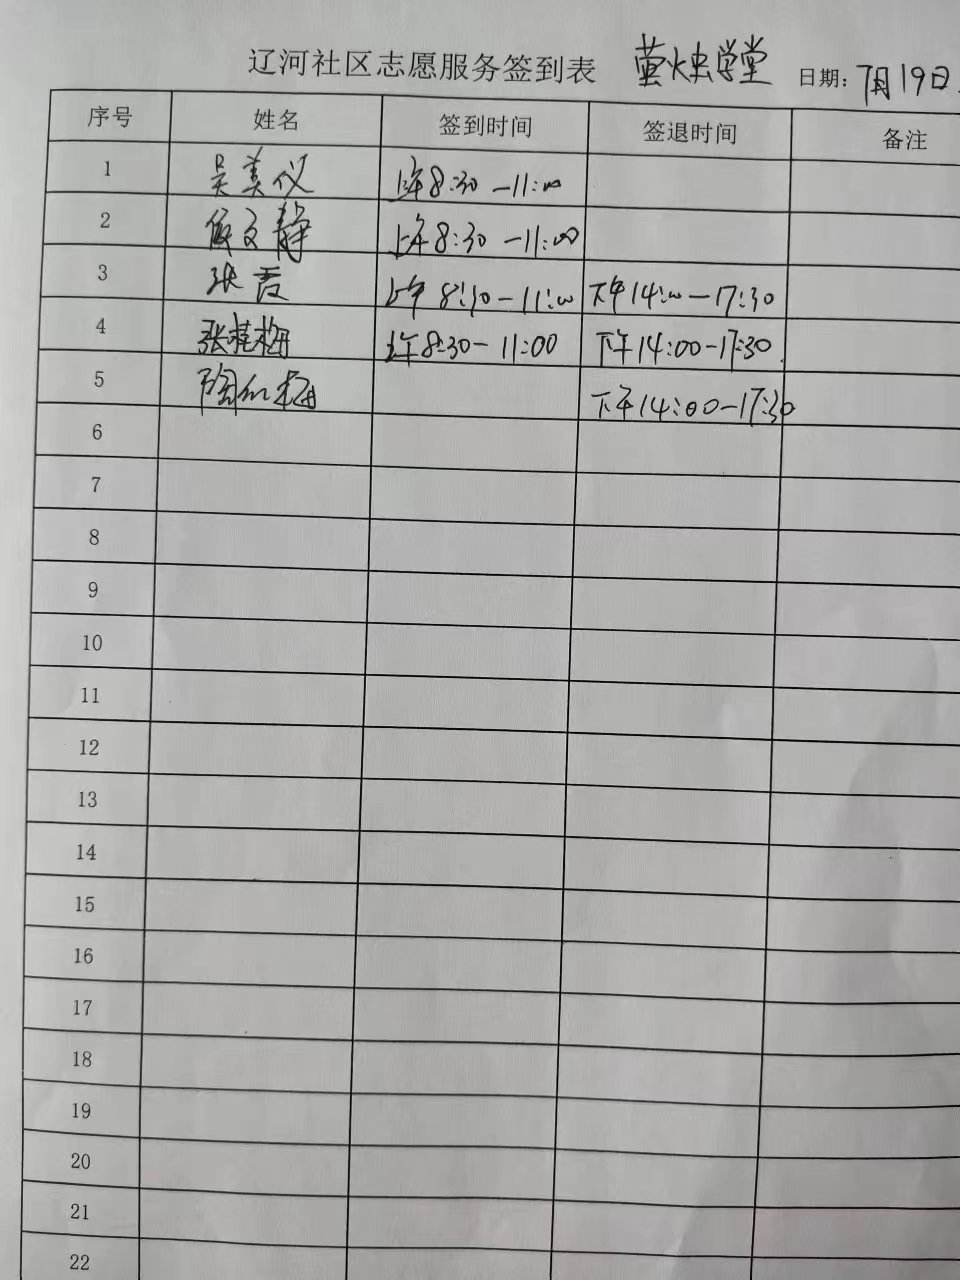 辽河社区志愿服务签到表 萤火虫学堂 日期: 7月19日
序号 姓名 签到时间 签退时间 备注
1 吴美仪 上午8:30-11:00
2 文静 上午8:30-11:00
3 张霞 上午8:30-11:00 下午14:00-17:30
4 张桂梅 上午8:30-11:00 下午14:00-17:30
5 陶红梅 下午14:00-17:30
6
7
8
9
10
11
12
13
14
15
16
17
18
19
20
21
22